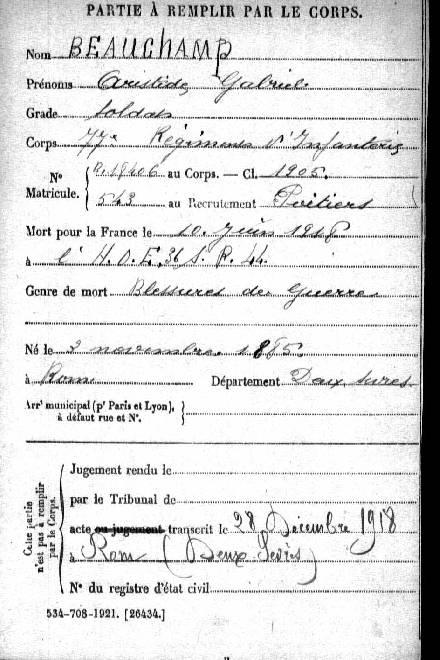 PARTIE À REMPLIR PAR LE CORPS.
Nom BEAUCHAMP
Prénoms Aristide, Gabriel
Grade soldat
Corps 77e Régiment d'Infanterie
N° Matricule. R. 19406 au Corps. — Cl. 1905.
543 au Recrutement Poitiers
Mort pour la France le 10 Juin 1918
à l'H.O.E. 36 S.R. 44
Genre de mort Blessures de Guerre
Né le 2 novembre 1885
à Rom Département Deux Sèvres
Arrt municipal (pr Paris et Lyon), à défaut rue et N°.
Cette partie n'est pas à remplir par le Corps.
Jugement rendu le
par le Tribunal de
acte ou jugement transcrit le 28 Décembre 1918
à Rom (Deux Sèvres)
N° du registre d'état civil
534-708-1921. [26434.]